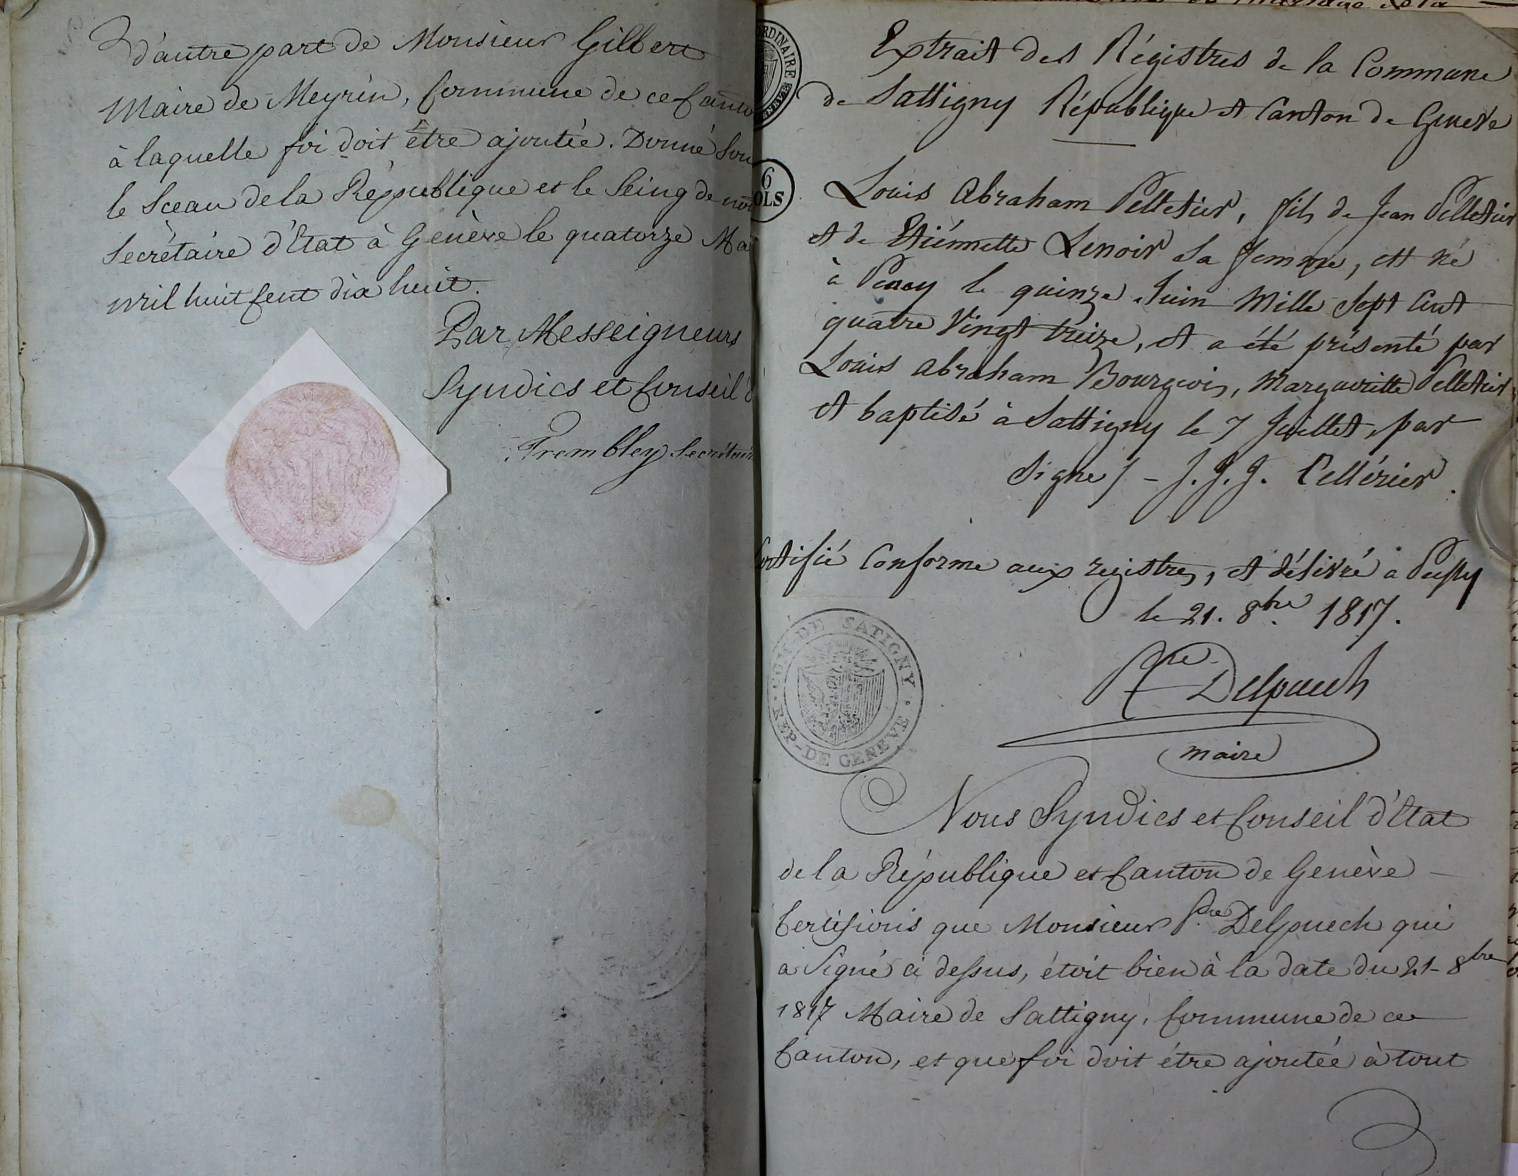 d'autre part de Monsieur Gilbert
Maire de Meyrin, Commune de ce Canto
à laquelle foi doit être ajoutée. Donné sou
le Sceau de la République et le Seing de
Secrétaire d'Etat à Genève le quatorze Ma
mil huit cent dix huit.
Par Messeigneurs
Syndics et Conseil d
Trembley Secrétair
Extrait des Régistres de la Commune
de Sattigny République et Canton de Genève
RDINAIRE
6
OLS
Louis Abraham Pelletier, fils de Jean Pelletier
et de Etiénnette Lenoir sa femme, est né
à Penay le quinze Juin Mille Sept Cent
quatre Vingt treize, et a été présenté par
Louis Abraham Bourgeois, Margueritte Pelletier,
et baptisé à Sattigny le 7 Juillet, par
Signé / - J. J. J. Pellérier.
Certifié Conforme aux registres, et délivré à
le 21. 8bre 1817.
Delpuech
maire
COM. DE SATIGNY
REP. DE GENEVE
Nous Syndics et Conseil d'Etat
de la République et Canton de Genève
Certifions que Monsieur Pre Delpuech qui
a Signé ci dessus, étoit bien à la date du 21 - 8bre
1817 Maire de Sattigny, Commune de ce
Canton, et que foi doit être ajoutée à tout